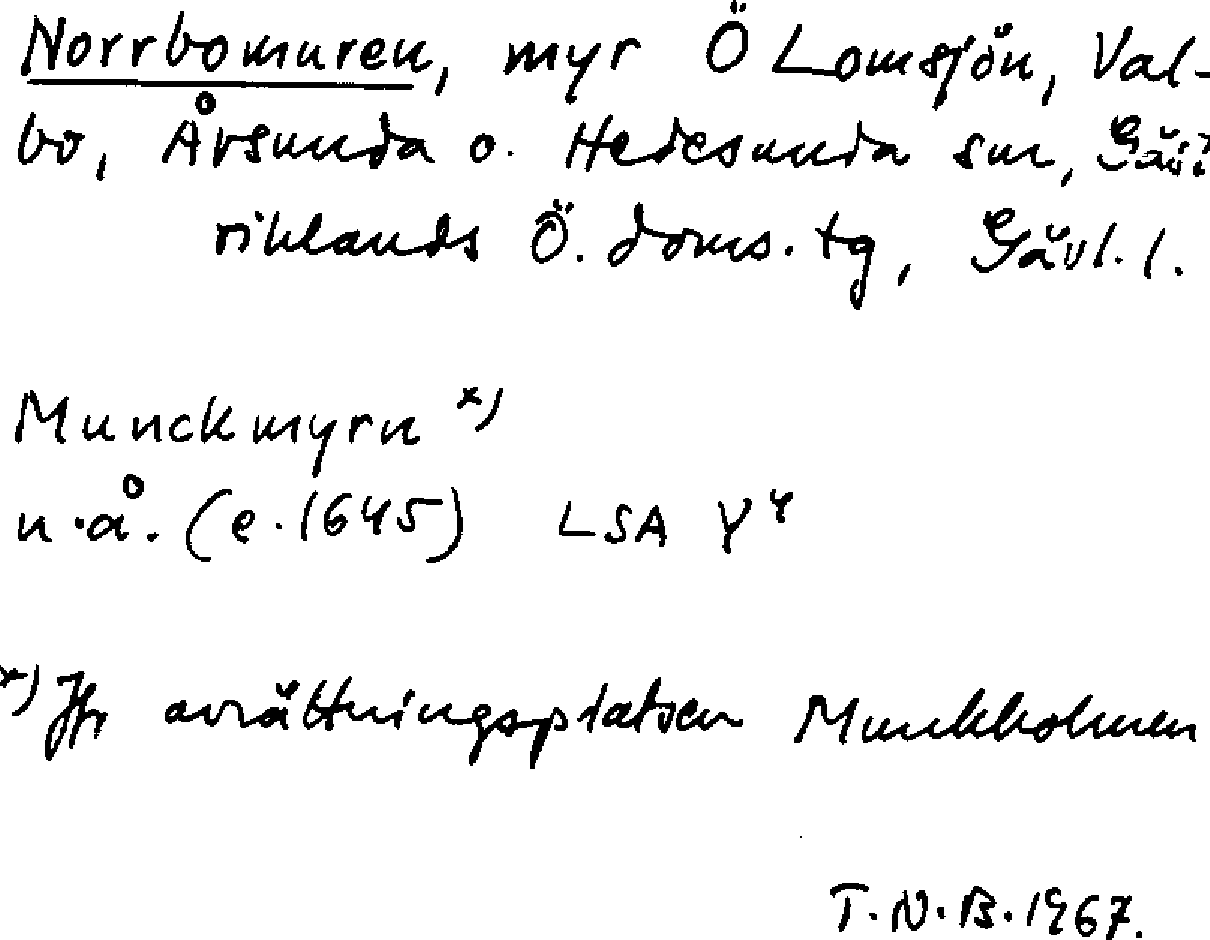 Norrbomuren, myr Ö Lomsjön, Val-
bo, Årsunda o. Hedesunda snr,
riklands Ö. doms. tg, Gävl. l.
Munckmyrn x)
n.å. (e. 1645) LSA Y 4
x) Jfr avrättningsplatsen Munkholmen
T.N.B. 1967.